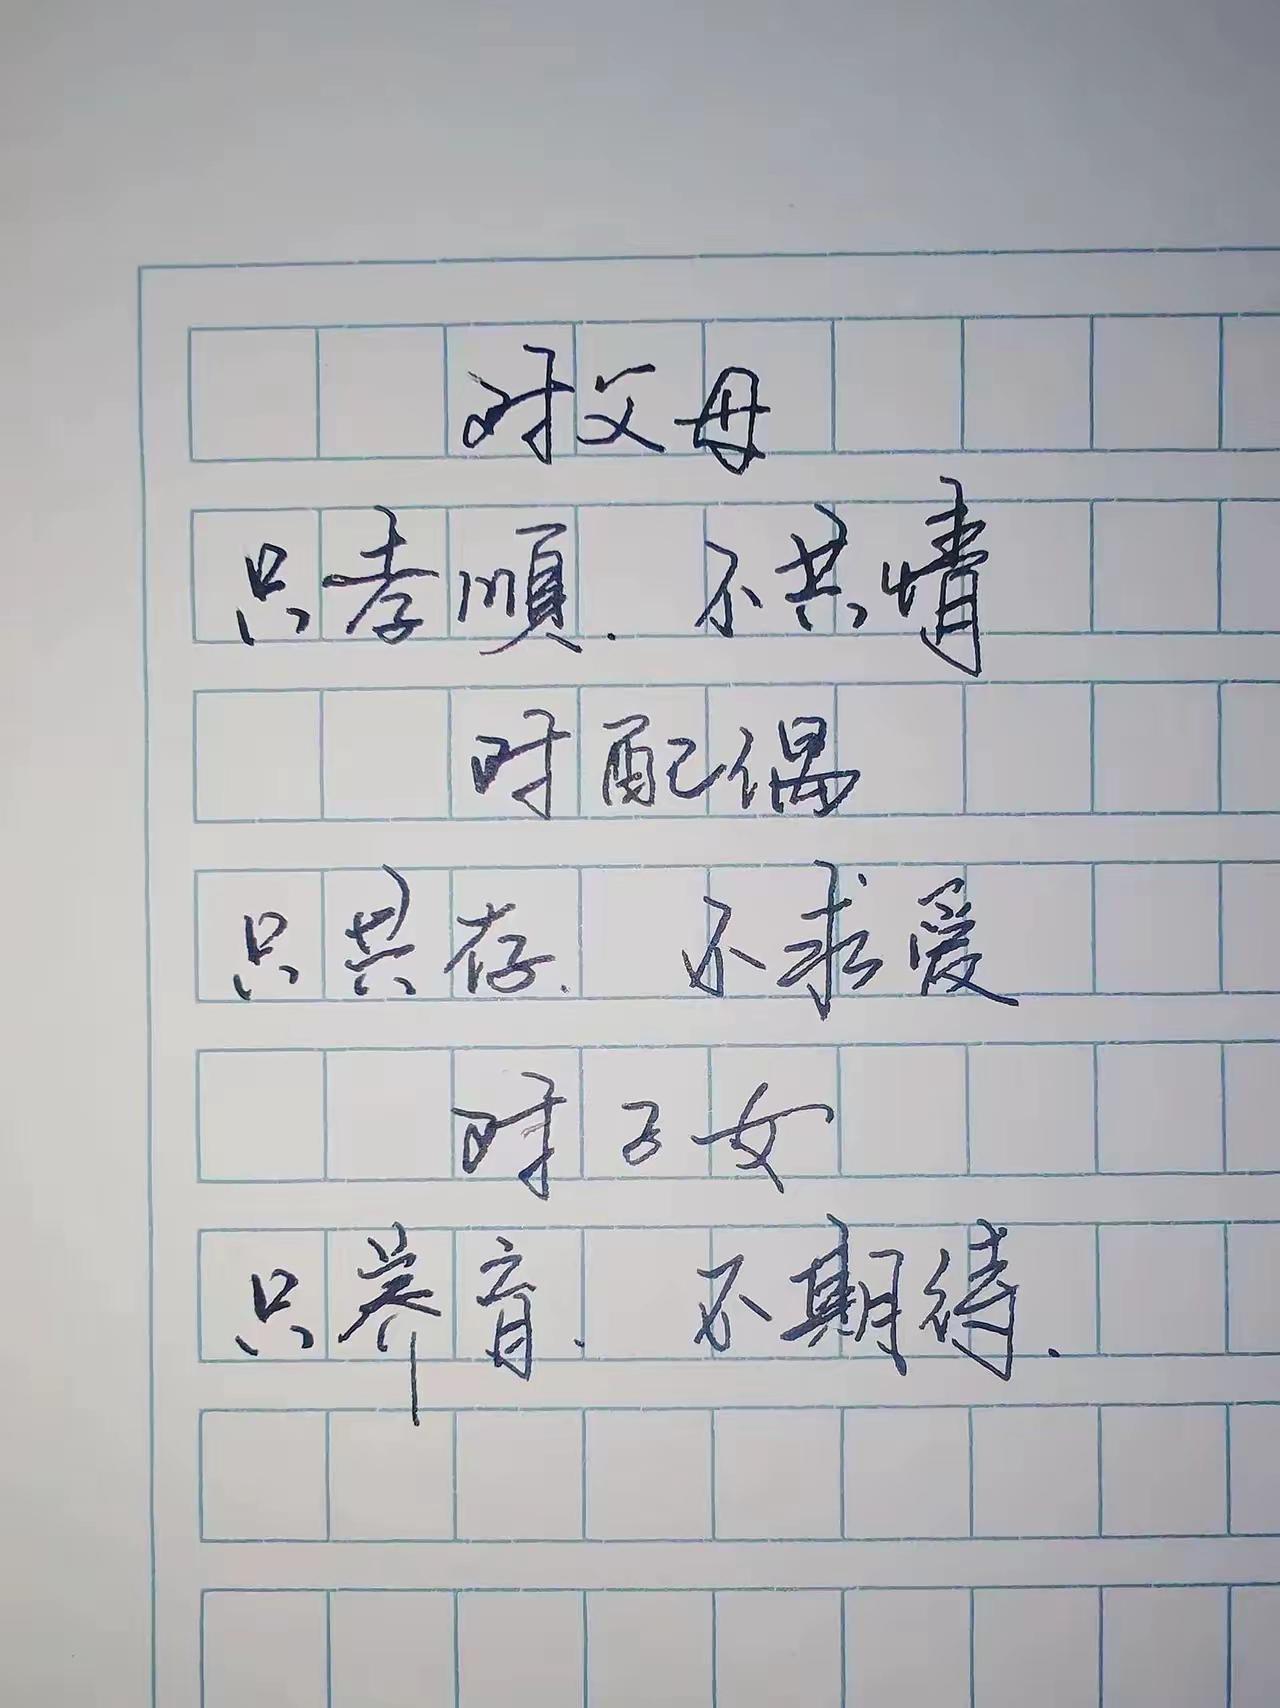 对父母
只孝順. 不共情
对配偶
只共存. 不求爱
对子女
只养育. 不期待.